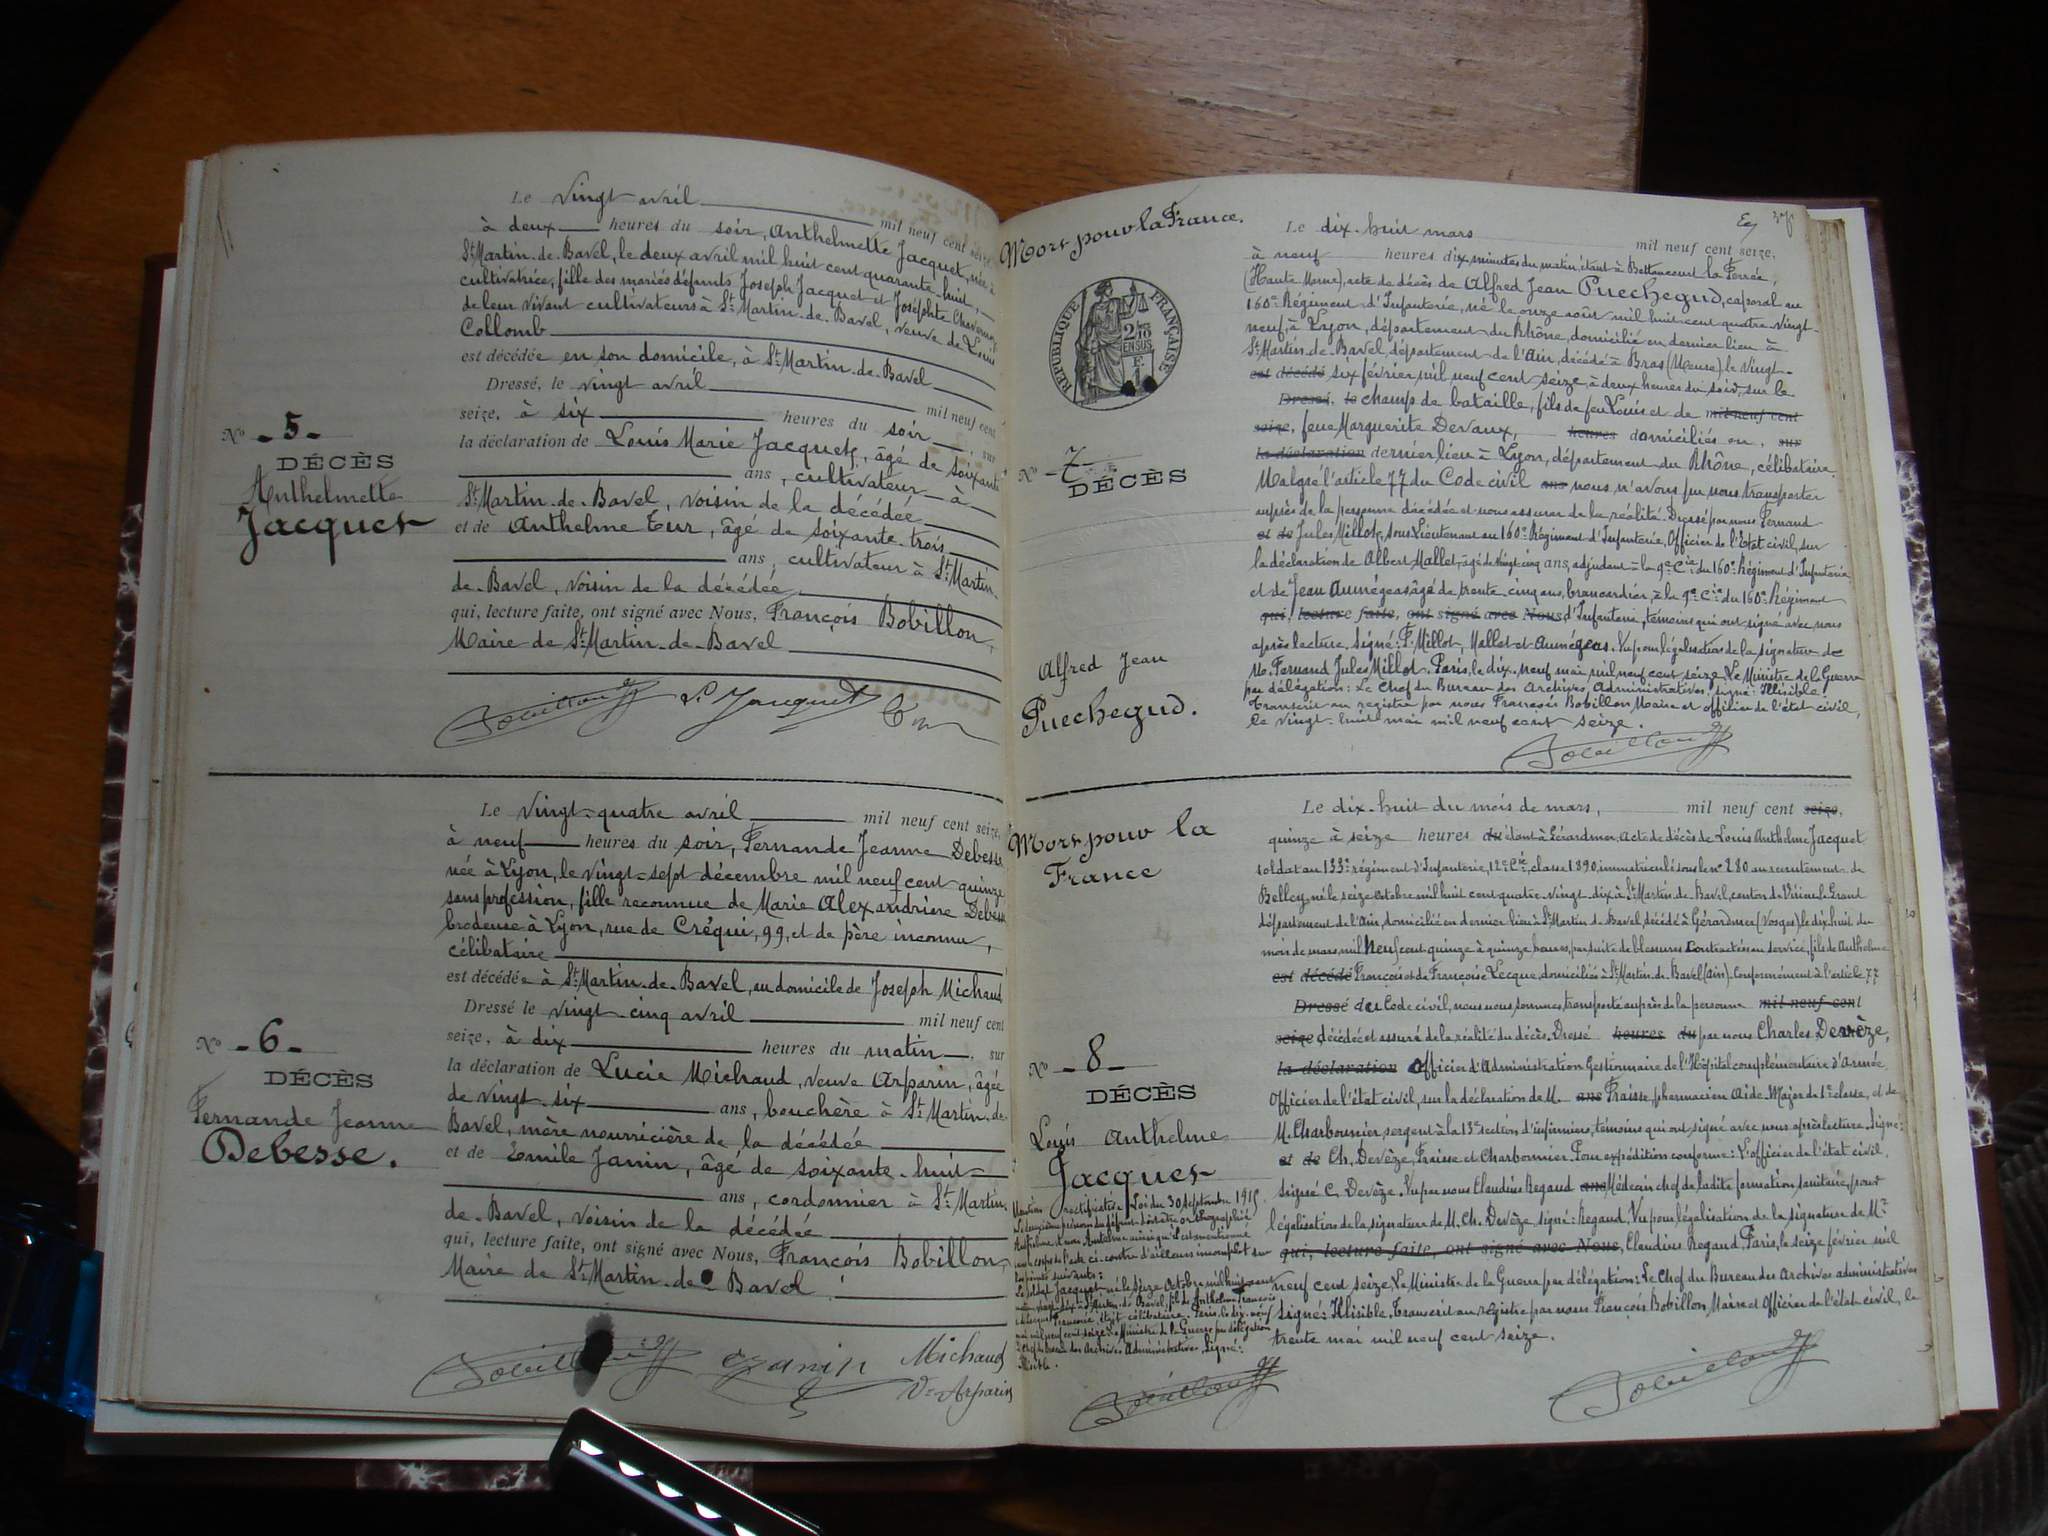 Le vingt avril mil neuf cent seize,
à deux heures du soir, Anthelmette Jacquet, née à
St Martin-de-Bavel, le deux avril mil huit cent quarante-huit,
cultivatrice, fille des mariés défunts Joseph Jacquet et Joséphte
de leur vivant cultivateurs à St Martin-de-Bavel, veuve de Louis
Collomb
est décédée en son domicile, à St Martin-de-Bavel
Dressé, le vingt avril mil neuf cent
seize, à six heures du soir, sur
la déclaration de Louis Marie Jacquet, âgé de soixante
ans, cultivateur à
St Martin-de-Bavel, voisin de la décédée
et de Anthelme Tur, âgé de soixante-trois
ans, cultivateur à St Martin-
de-Bavel, voisin de la décédée
qui, lecture faite, ont signé avec Nous, François Bobillon,
Maire de St Martin-de-Bavel
No -5-
DÉCÈS
Anthelmette
Jacquet
Bobillon L. Jacquet Tur
Le vingt-quatre avril mil neuf cent seize,
à neuf heures du soir, Fernande Jeanne Debesse
née à Lyon, le vingt-sept décembre mil neuf cent quinze
sans profession, fille reconnue de Marie Alexandrine Debesse
brodeuse à Lyon, rue de Créqui, 99, et de père inconnu,
célibataire
est décédée à St Martin-de-Bavel, au domicile de Joseph Michaud
Dressé le vingt-cinq avril mil neuf cent
seize, à dix heures du matin, sur
la déclaration de Lucie Michaud, veuve Arparin, âgée
de vingt-six ans, bouchère à St Martin-de-
Bavel, mère nourricière de la décédée
et de Emile Janin, âgé de soixante-huit
ans, cordonnier à St Martin-
de-Bavel, voisin de la décédée
qui, lecture faite, ont signé avec Nous, François Bobillon,
Maire de St Martin-de-Bavel
No -6-
DÉCÈS
Fernande Jeanne
Debesse.
Bobillon Janin Michaud
Ve Arparin
Mort pour la France.
RÉPUBLIQUE FRANÇAISE
2/10 EN SUS
No 7
DÉCÈS
Alfred Jean
Puechegud.
Le dix-huit mars mil neuf cent seize,
à neuf heures dix minutes du matin, étant à Bettancourt la Ferrée,
(Haute Marne), acte de décès de Alfred Jean Puechegud, caporal au
160e Régiment d'Infanterie, né le onze août mil huit cent quatre-vingt-
neuf, à Lyon, département du Rhône, domicilié en dernier lieu à
St Martin-de-Bavel, département de l'Ain, décédé à Bras (Meuse), le vingt-
est décédé six février mil neuf cent seize, à deux heures du soir, sur le
Dressé, le champ de bataille, fils de feu Louis et de mil neuf cent
seize, feue Marguerite Devaux, heures domiciliés en, sur
la déclaration dernier lieu à Lyon, département du Rhône, célibataire
Malgré l'article 77 du Code civil ans nous n'avons pu nous transporter
auprès de la personne décédée et nous assurer de la réalité. Dressé par nous Fernand
et de Jules Millot, sous Lieutenant au 160e Régiment d'Infanterie, Officier de l'Etat civil, sur
la déclaration de Albert Mallet, âgé de vingt-cinq ans, adjudant à la 9e Cie du 160e Régiment d'Infanterie
et de Jean Aumégeas âgé de trente-cinq ans, brancardier, à la 9e Cie du 160e Régiment
qui, lecture faite, ont signé avec Nous d'Infanterie, témoins qui ont signé avec nous
après lecture. Signé: F. Millot, Mallet et Aumégeas. Vu pour légalisation de la signature de
M. Fernand Jules Millot. Paris, le dix-neuf mai mil neuf cent seize. Le Ministre de la Guerre
par délégation: Le Chef du Bureau des Archives Administratives, signé: Illisible.
Transcrit au registre par nous François Bobillon Maire et officier de l'état civil,
le vingt-huit mai mil neuf cent seize.
Bobillon
Mort pour la
France
No -8-
DÉCÈS
Louis Anthelme
Jacquet
Le dix-huit du mois de mars, mil neuf cent seize,
quinze à seize heures du étant à Gérardmer. Acte de décès de Louis Anthelme Jacquet
soldat au 133e régiment d'Infanterie, 12e Cie, classe 1890, immatriculé sous le no 280 au recrutement de
Belley, né le seize octobre mil huit cent quatre-vingt-dix à St Martin de Bavel, canton de Virieu le Grand
département de l'Ain, domicilié en dernier lieu à St Martin de Bavel, décédé à Gérardmer (Vosges), le dix-huit du
mois de mars mil neuf cent quinze à quinze heures, par suite de blessures contractées au service, fils de Anthelme
est décédé François et de Françoise Lecque, domiciliés à St Martin-de-Bavel (Ain). Conformément à l'article 77
Dressé du Code civil, nous nous sommes transporté auprès de la personne mil neuf cent
seize décédée et assuré de la réalité du décès. Dressé heures du par nous Charles Devèze,
la déclaration Officier d'Administration Gestionnaire de l'Hôpital complémentaire d'Armée,
Officier de l'état civil, sur la déclaration de M. ans Fraisse, pharmacien Aide-Major de 1e classe, et de
M. Charbonnier, sergent à la 13e section d'infirmiers, témoins qui ont signé avec nous après lecture. Signé:
et de Ch. Devèze, Fraisse et Charbonnier. Pour expédition conforme: L'officier de l'état civil,
signé C. Devèze. Vu par nous Claudius Regaud ans Médecin chef de ladite formation sanitaire, pour
légalisation de la signature de M. Ch. Devèze signé: Regaud. Vu pour légalisation de la signature de Mr
qui, lecture faite, ont signé avec Nous, Claudius Regaud. Paris, le seize février mil
neuf cent seize. Le Ministre de la Guerre par délégation: Le Chef du Bureau des Archives administratives
signé: Illisible. Transcrit au registre par nous François Bobillon, Maire et Officier de l'état civil, le
trente mai mil neuf cent seize.
Mention rectificative Loi du 30 septembre 1915.
Le deuxième prénom du défunt doit être orthographié
Anthelme et non Antelme ainsi qu'il est mentionné
au corps de l'acte ci-contre d'ailleurs incomplet sur
les points suivants:
Le soldat Jacquet né le seize Octobre mil huit cent
quatre-vingt-dix à St Martin-de-Bavel, fils de Anthelme François
Françoise, était célibataire. Paris, le dix-neuf
mai mil neuf cent seize. Le Ministre de la Guerre par délégation
Le Chef du Bureau des Archives Administratives. Signé:
Illisible.
Bobillon Bobillon